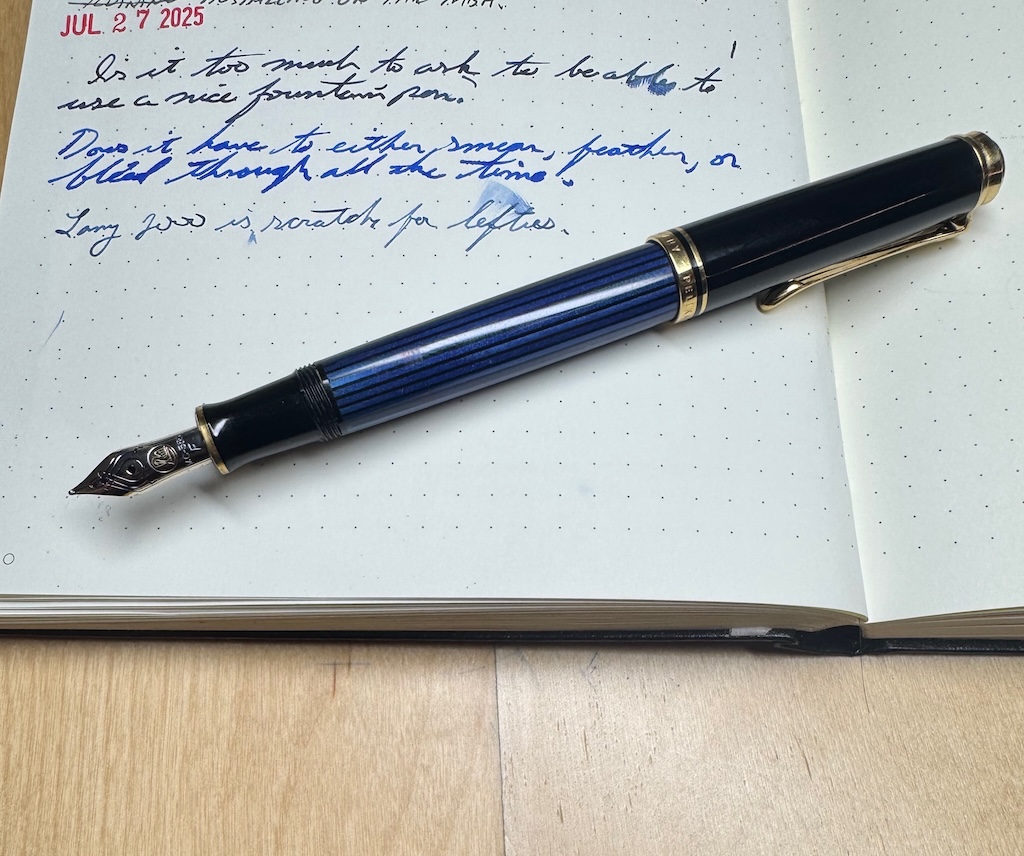 JUL 27 2025
Is it too much to ask to be able to
use a nice fountain pen.
Does it have to either smear, feather, or
bleed through all the time.
Lamy 2000 is scratch for lefties.
PELIKAN
F